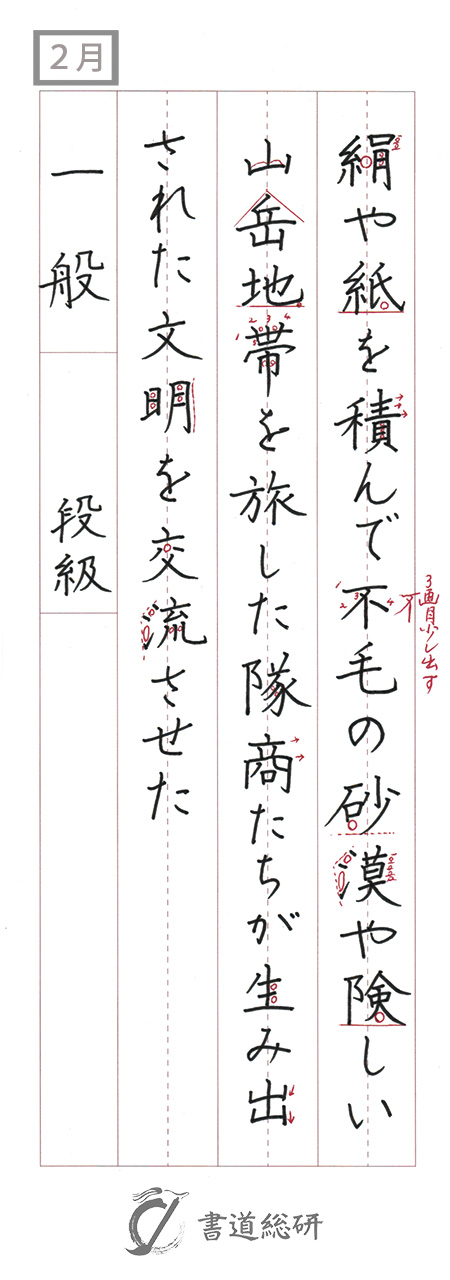 2月
絹や紙を積んで不毛の砂漠や険しい
山岳地帯を旅した隊商たちが生み出
された文明を交流させた
一般
段級
3画目少し出す
不
1 2 3 4
1 2 3 4 5
書道総研